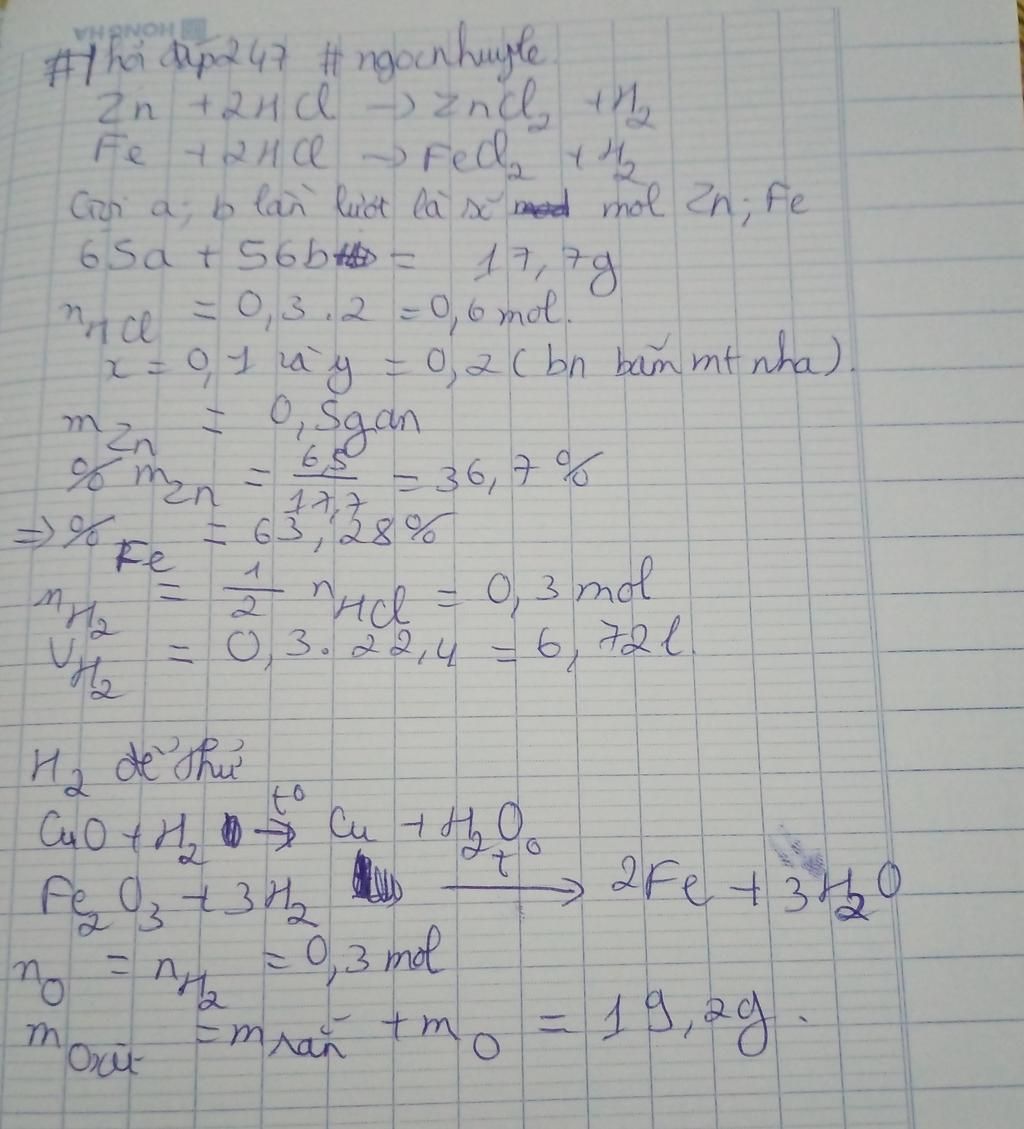 HONG HA
#Hỏi đáp247 #ngocnhuyle
Zn + 2HCl → ZnCl₂ + H₂
Fe + 2HCl → FeCl₂ + H₂
Gọi a; b lần lượt là số mol Zn; Fe
65a + 56b = 17,7g
nHCl = 0,3.2 = 0,6 mol.
x = 0,1 và y = 0,2 (bn bấm mt nha).
mZn = 0,5gan
% mZn = 6,5/17,7 = 36,7%
=> % Fe = 63,28%
nH₂ = 1/2 nHCl = 0,3 mol
VH₂ = 0,3.22,4 = 6,72l
H₂ để thử
CuO + H₂ t⁰→ Cu + H₂O
Fe₂O₃ + 3H₂ t⁰→ 2Fe + 3H₂O
nO = nH₂ = 0,3 mol
mOxit = mrắn + mO = 19,2g.